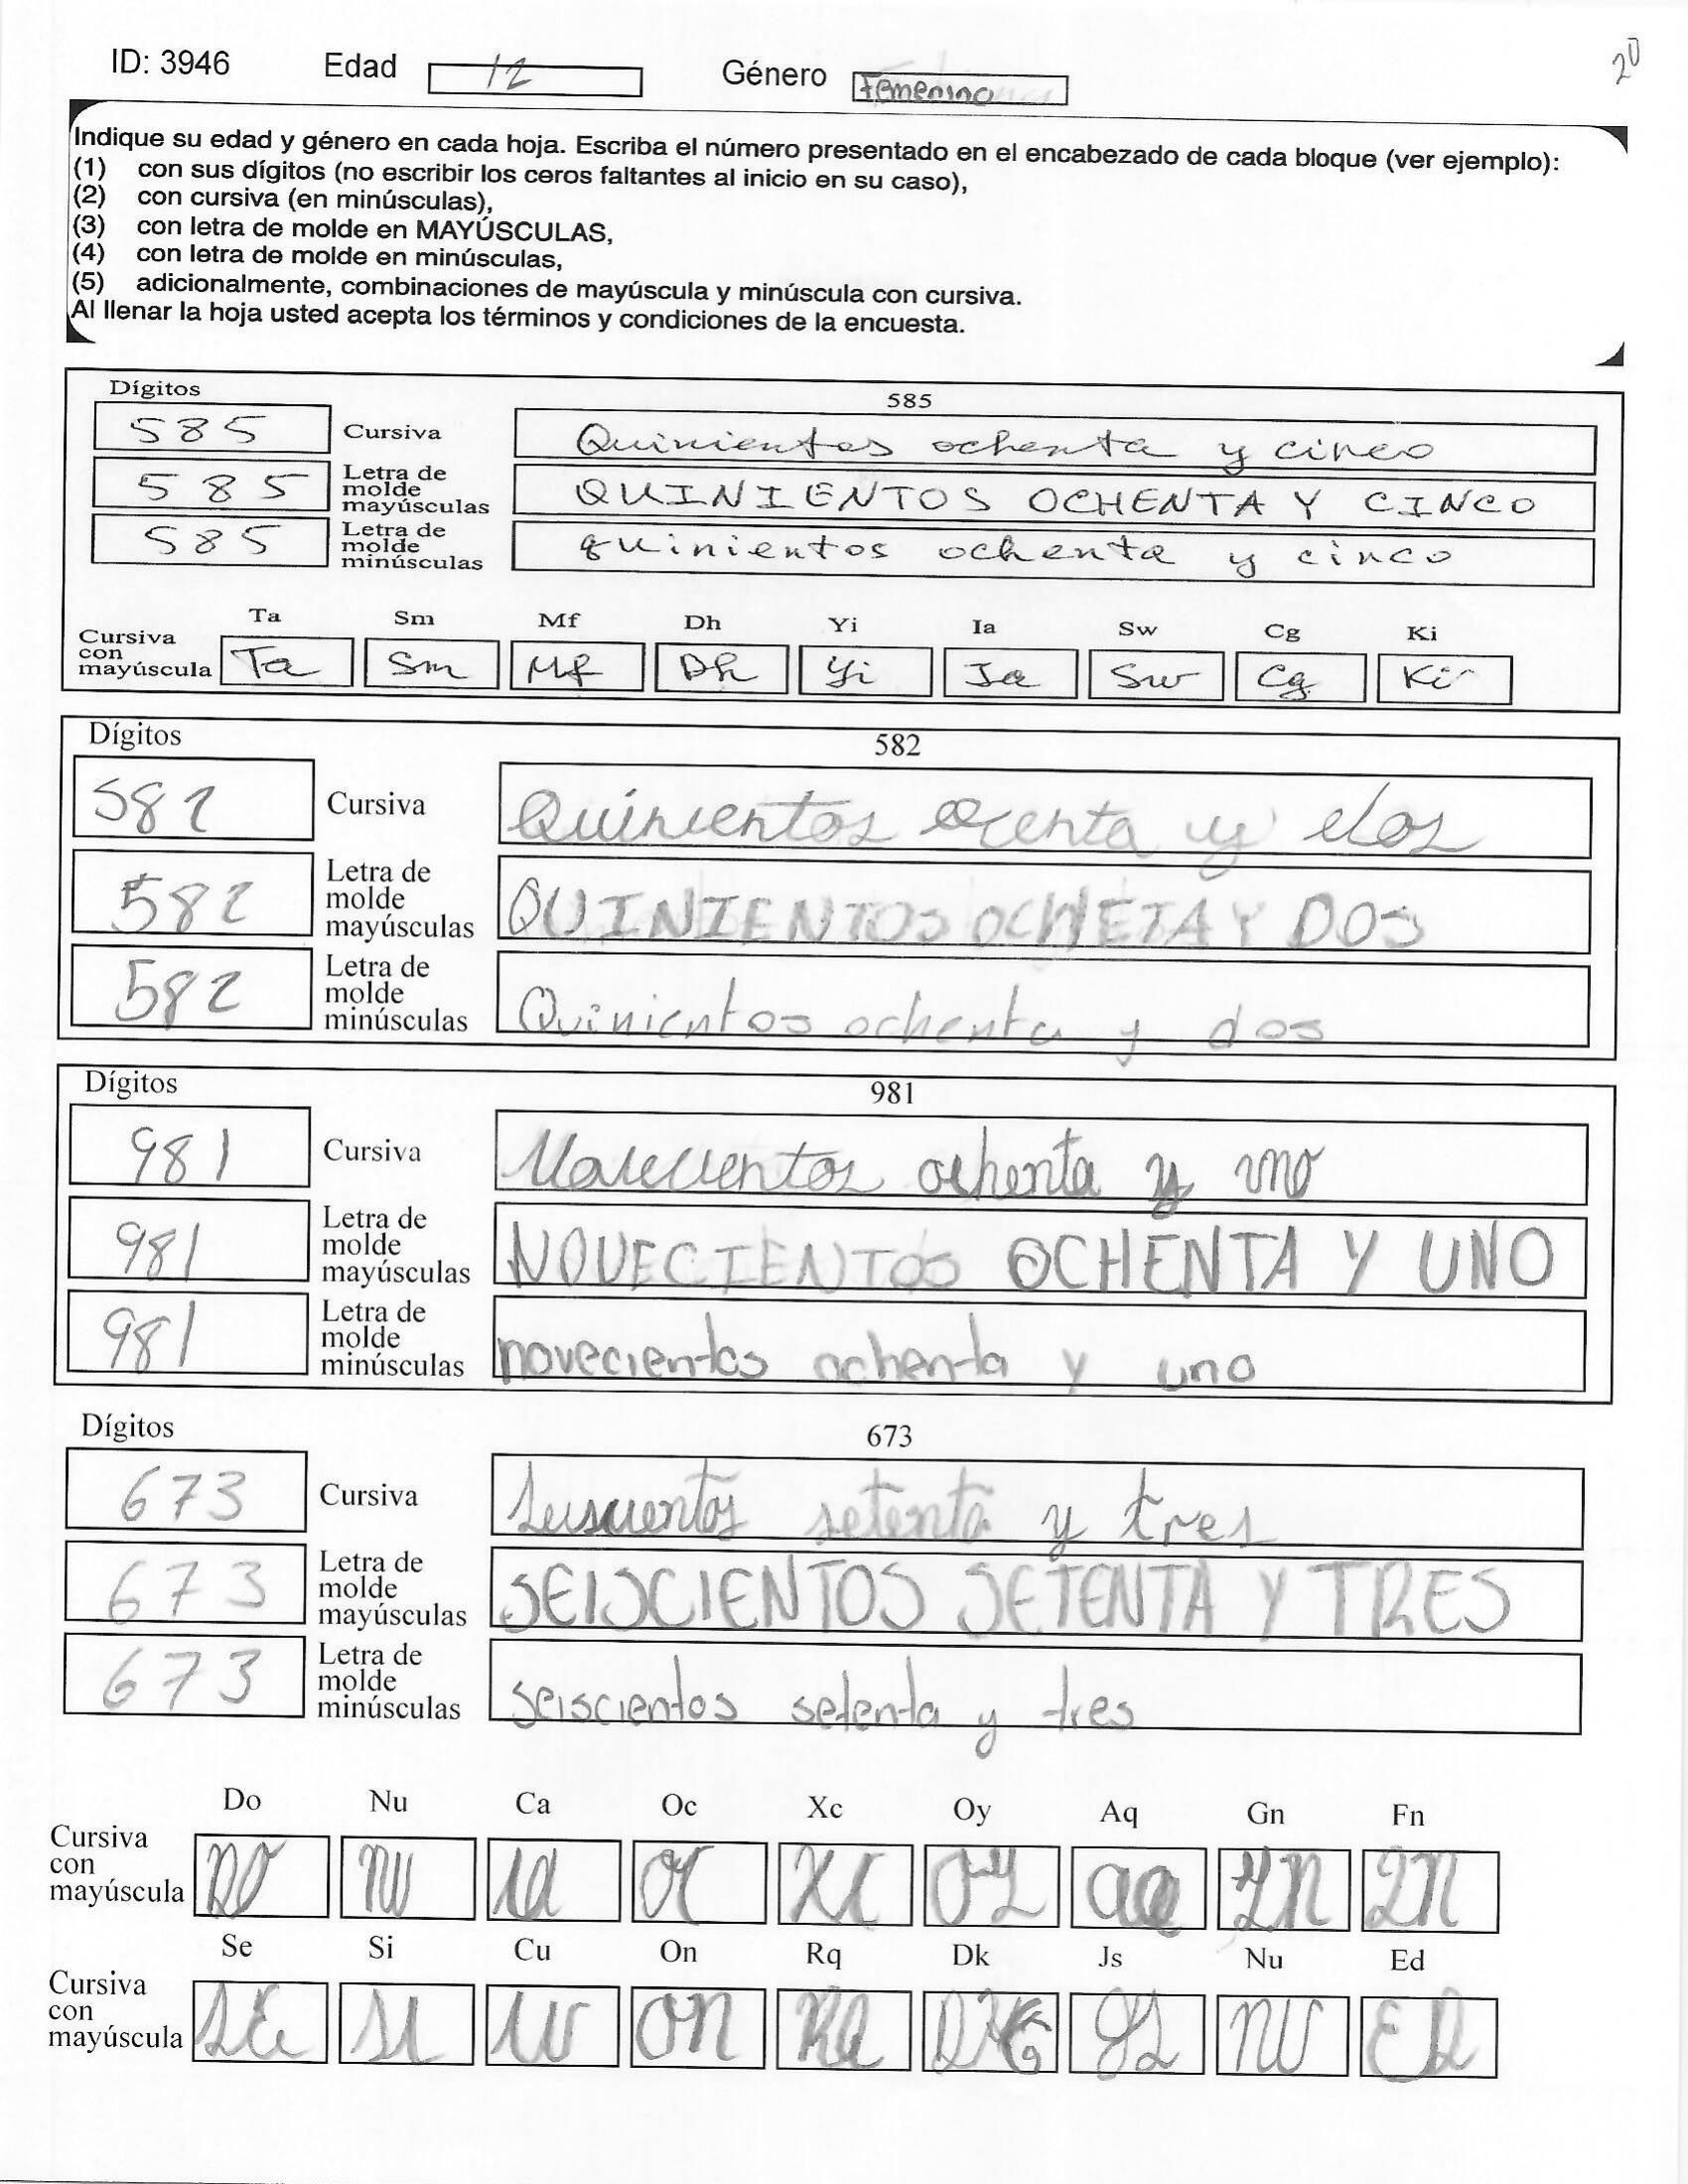 ID: 3946 Edad 12 Género Femenino 20
Indique su edad y género en cada hoja. Escriba el número presentado en el encabezado de cada bloque (ver ejemplo):
(1) con sus dígitos (no escribir los ceros faltantes al inicio en su caso),
(2) con cursiva (en minúsculas),
(3) con letra de molde en MAYÚSCULAS,
(4) con letra de molde en minúsculas,
(5) adicionalmente, combinaciones de mayúscula y minúscula con cursiva.
Al llenar la hoja usted acepta los términos y condiciones de la encuesta.
Dígitos 585
585 Cursiva Quinientos ochenta y cinco
585 Letra de molde mayúsculas QUINIENTOS OCHENTA Y CINCO
585 Letra de molde minúsculas quinientos ochenta y cinco
Ta Sm Mf Dh Yi Ia Sw Cg Ki
Cursiva con mayúscula Ta Sm Mf Dh Yi Ia Sw Cg Ki
Dígitos 582
582 Cursiva Quinientos y dos
582 Letra de molde mayúsculas QUINIENTOS OCHETA Y DOS
582 Letra de molde minúsculas Quinientos ochenta y dos
Dígitos 981
981 Cursiva ochenta y uno
981 Letra de molde mayúsculas NOVECIENTOS OCHENTA Y UNO
981 Letra de molde minúsculas novecientos ochenta y uno
Dígitos 673
673 Cursiva Seiscientos setenta y tres
673 Letra de molde mayúsculas SEISCIENTOS SETENTA Y TRES
673 Letra de molde minúsculas seiscientos setenta y tres
Do Nu Ca Oc Xc Oy Aq Gn Fn
Cursiva con mayúscula
Se Si Cu On Rq Dk Js Nu Ed
Cursiva con mayúscula